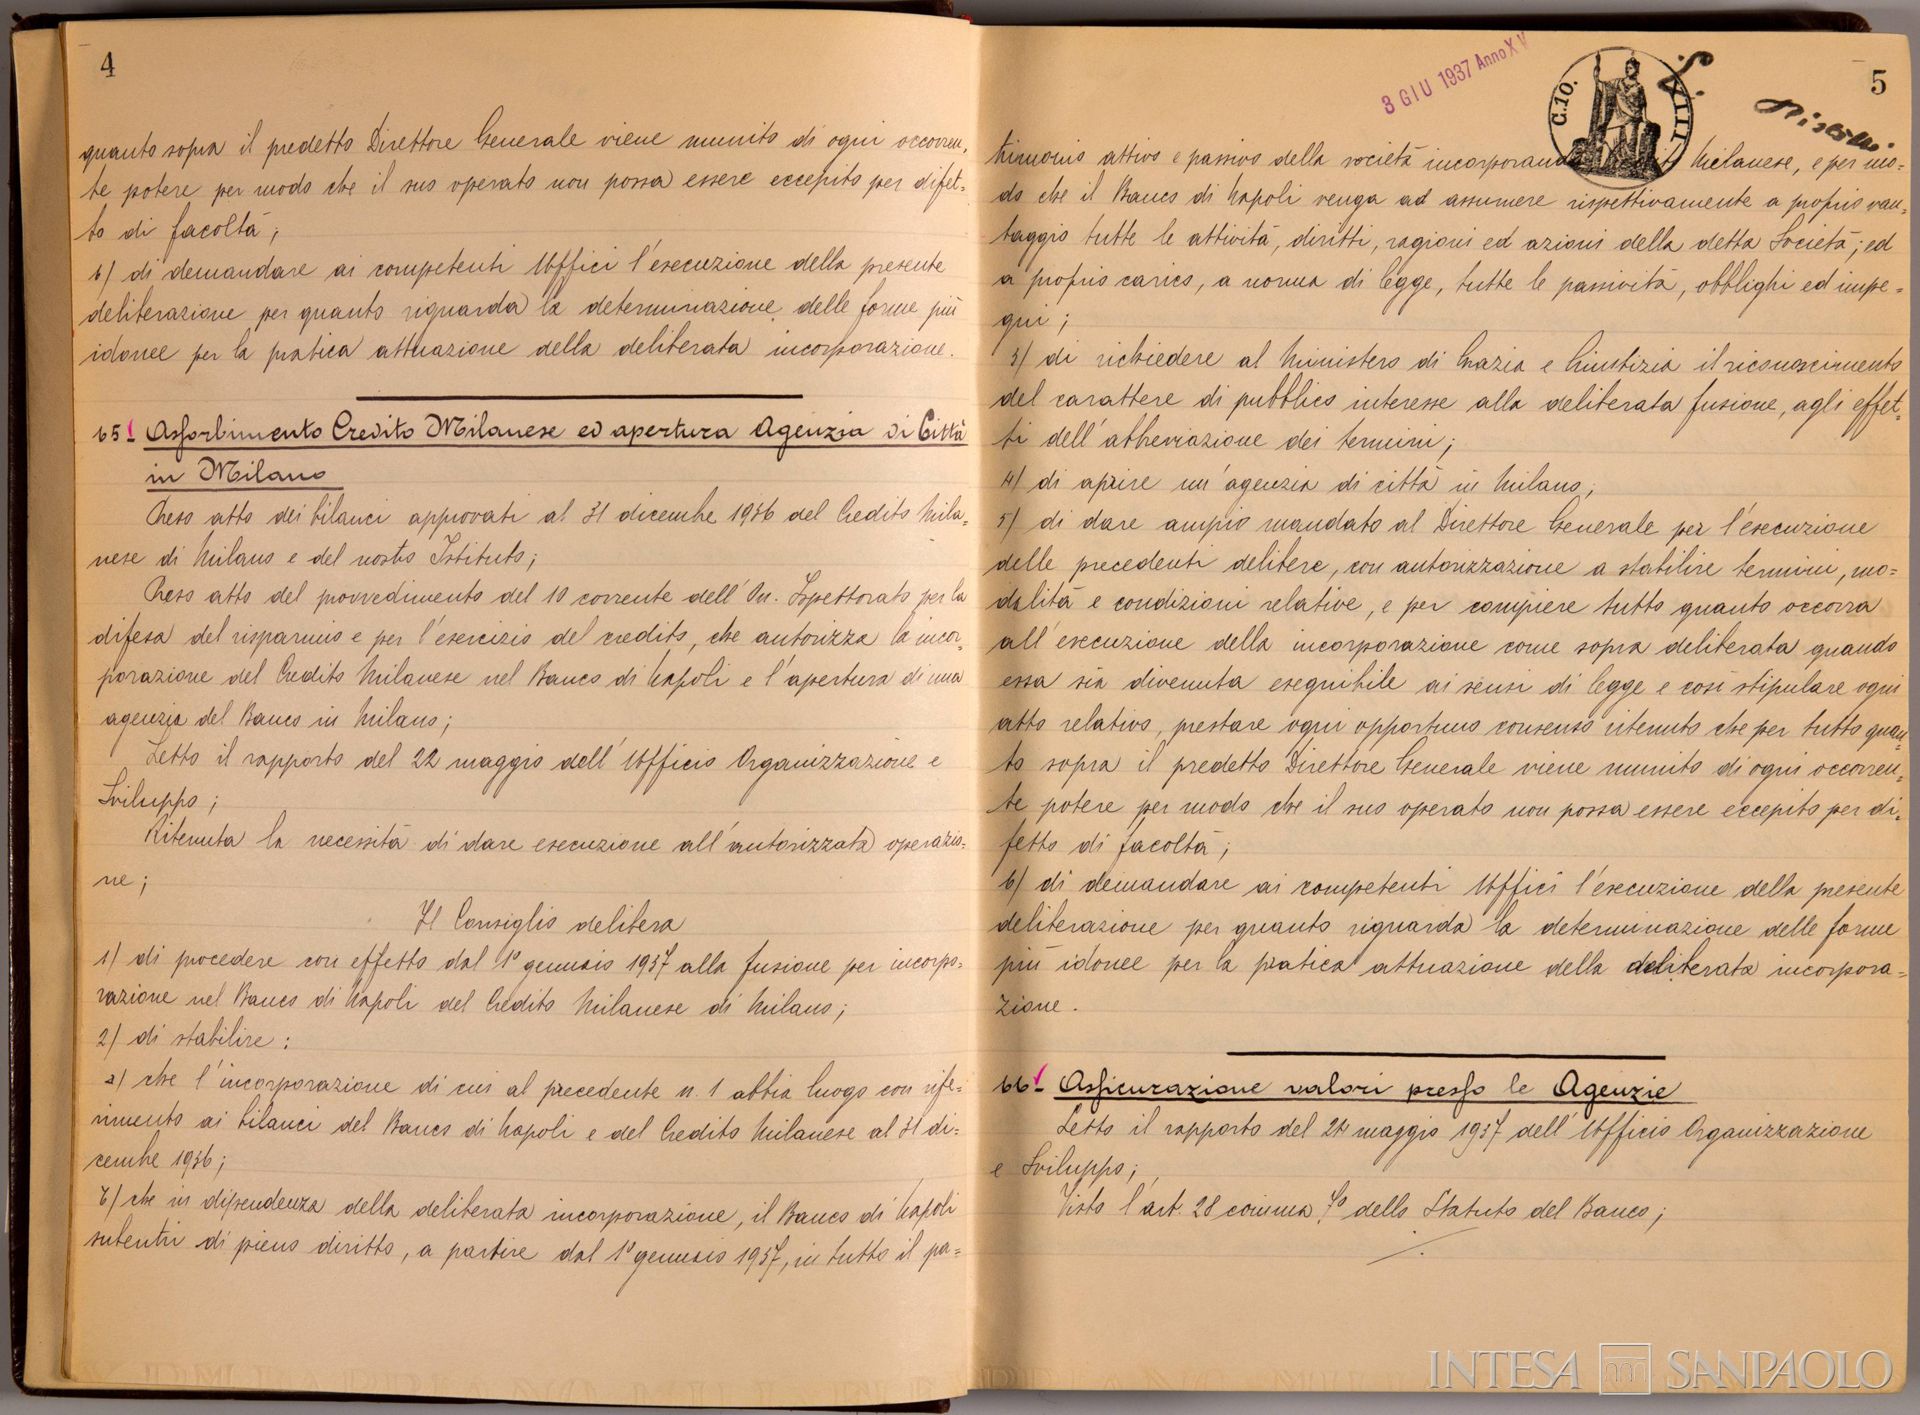 4
quanto sopra il predetto Direttore Generale viene munito di ogni occorren-
te potere per modo che il suo operato non possa essere eccepito per difet-
to di facoltà;
6) di demandare ai competenti Uffici l'esecuzione della presente
deliberazione per quanto riguarda la determinazione delle forme più
idonee per la pratica attuazione della deliberata incorporazione.
65 Assorbimento Credito Milanese ed apertura Agenzia di Città
in Milano
Preso atto dei bilanci approvati al 31 dicembre 1936 del Credito Mila-
nese di Milano e del nostro Istituto;
Preso atto del provvedimento del 10 corrente dell'On. Ispettorato per la
difesa del risparmio e per l'esercizio del credito, che autorizza la incor-
porazione del Credito Milanese nel Banco di Napoli e l'apertura di una
agenzia del Banco in Milano;
Letto il rapporto del 22 maggio dell'Ufficio Organizzazione e
Sviluppo;
Ritenuta la necessità di dare esecuzione all'autorizzata operazio-
ne;
Il Consiglio delibera
1) di procedere con effetto dal 1° gennaio 1937 alla fusione per incorpo-
razione nel Banco di Napoli del Credito Milanese di Milano;
2) di stabilire:
a) che l'incorporazione di cui al precedente n. 1 abbia luogo con rife-
rimento ai bilanci del Banco di Napoli e del Credito Milanese al 31 di-
cembre 1936;
b) che in dipendenza della deliberata incorporazione, il Banco di Napoli
subentri di pieno diritto, a partire dal 1° gennaio 1937, in tutto il pa-
3 GIU 1937 Anno XV
C.10.
XIII
5
trimonio attivo e passivo della società incorporanda Milanese, e per mo-
do che il Banco di Napoli venga ad assumere rispettivamente a proprio van-
taggio tutte le attività, diritti, ragioni ed azioni della detta Società; ed
a proprio carico, a norma di legge, tutte le passività, obblighi ed impe-
gni;
3) di richiedere al Ministero di Grazia e Giustizia il riconoscimento
del carattere di pubblico interesse alla deliberata fusione, agli effet-
ti dell'abbreviazione dei termini;
4) di aprire un'agenzia di città in Milano;
5) di dare ampio mandato al Direttore Generale per l'esecuzione
delle precedenti delibere, con autorizzazione a stabilire termini, mo-
dalità e condizioni relative, e per compiere tutto quanto occorra
all'esecuzione della incorporazione come sopra deliberata quando
essa sia divenuta eseguibile ai sensi di legge e così stipulare ogni
atto relativo, prestare ogni opportuno consenso ritenuto che per tutto quan-
to sopra il predetto Direttore Generale viene munito di ogni occorren-
te potere per modo che il suo operato non possa essere eccepito per di-
fetto di facoltà;
6) di demandare ai competenti Uffici l'esecuzione della presente
deliberazione per quanto riguarda la determinazione delle forme
più idonee per la pratica attuazione della deliberata incorpora-
zione.
66 Assicurazione valori presso le Agenzie
Letto il rapporto del 24 maggio 1937 dell'Ufficio Organizzazione
e Sviluppo;
Visto l'art. 28 comma 7° dello Statuto del Banco;
INTESA SANPAOLO